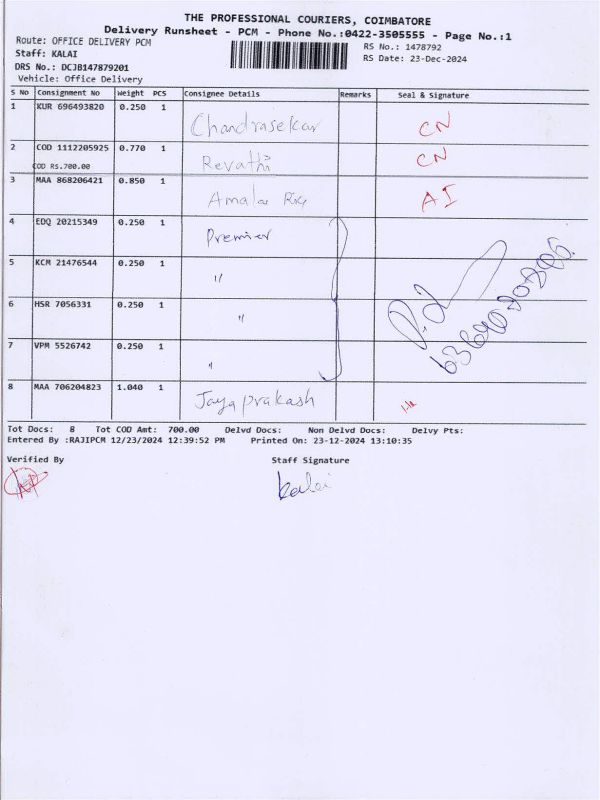 THE PROFESSIONAL COURIERS, COIMBATORE
Delivery Runsheet - PCM - Phone No.:0422-3505555 - Page No.:1
Route: OFFICE DELIVERY PCM
RS No.: 1478792
Staff: KALAI
RS Date: 23-Dec-2024
DRS No.: DCJB147879201
Vehicle: Office Delivery
S No Consignment No Weight PCS Consignee Details Remarks Seal & Signature
1 KUR 696493820 0.250 1 Chandrasekar CN
2 COD 1112205925 0.770 1 Revathi CN
COD RS.700.00
3 MAA 868206421 0.850 1 Amala AI
4 EDQ 20215349 0.250 1 Premier
5 KCM 21476544 0.250 1 "
6 HSR 7056331 0.250 1 "
7 VPM 5526742 0.250 1 "
8 MAA 706204823 1.040 1 Jayaprakash
Tot Docs: 8 Tot COD Amt: 700.00 Delvd Docs: Non Delvd Docs: Delvy Pts:
Entered By :RAJIPCM 12/23/2024 12:39:52 PM Printed On: 23-12-2024 13:10:35
Verified By Staff Signature
Kalai